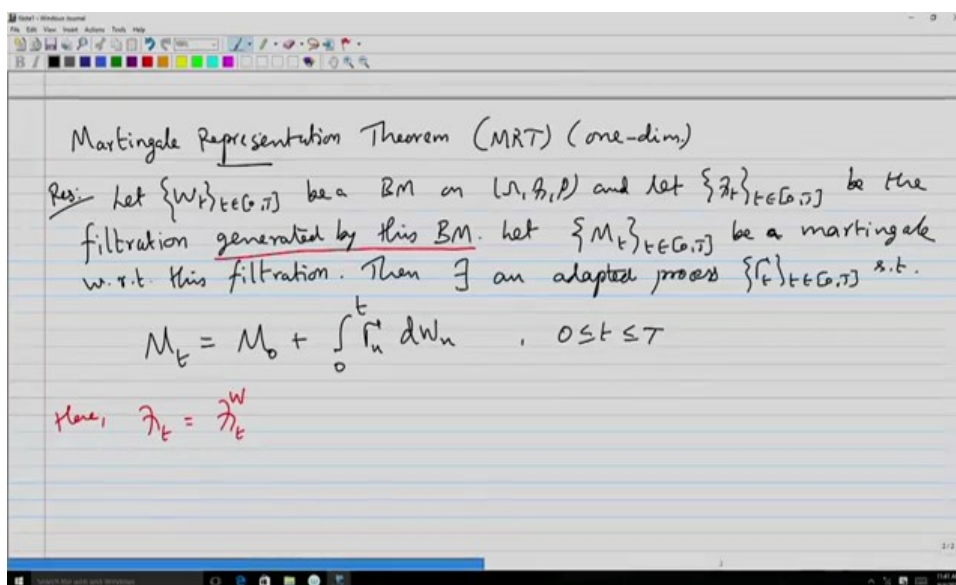 Note1 - Windows Journal
File Edit View Insert Actions Tools Help
B I
Martingale Representation Theorem (MRT) (one-dim.)
Res: Let {W_t}_{t∈[0,T]} be a BM on (Ω, ℱ, P) and let {ℱ_t}_{t∈[0,T]} be the
filtration generated by this BM. Let {M_t}_{t∈[0,T]} be a martingale
w.r.t. this filtration. Then ∃ an adapted process {Γ_t}_{t∈[0,T]} s.t.
M_t = M_0 + ∫_0^t Γ_u dW_u , 0 ≤ t ≤ T
Here, ℱ_t = ℱ_t^W
2/2
Search the web and Windows